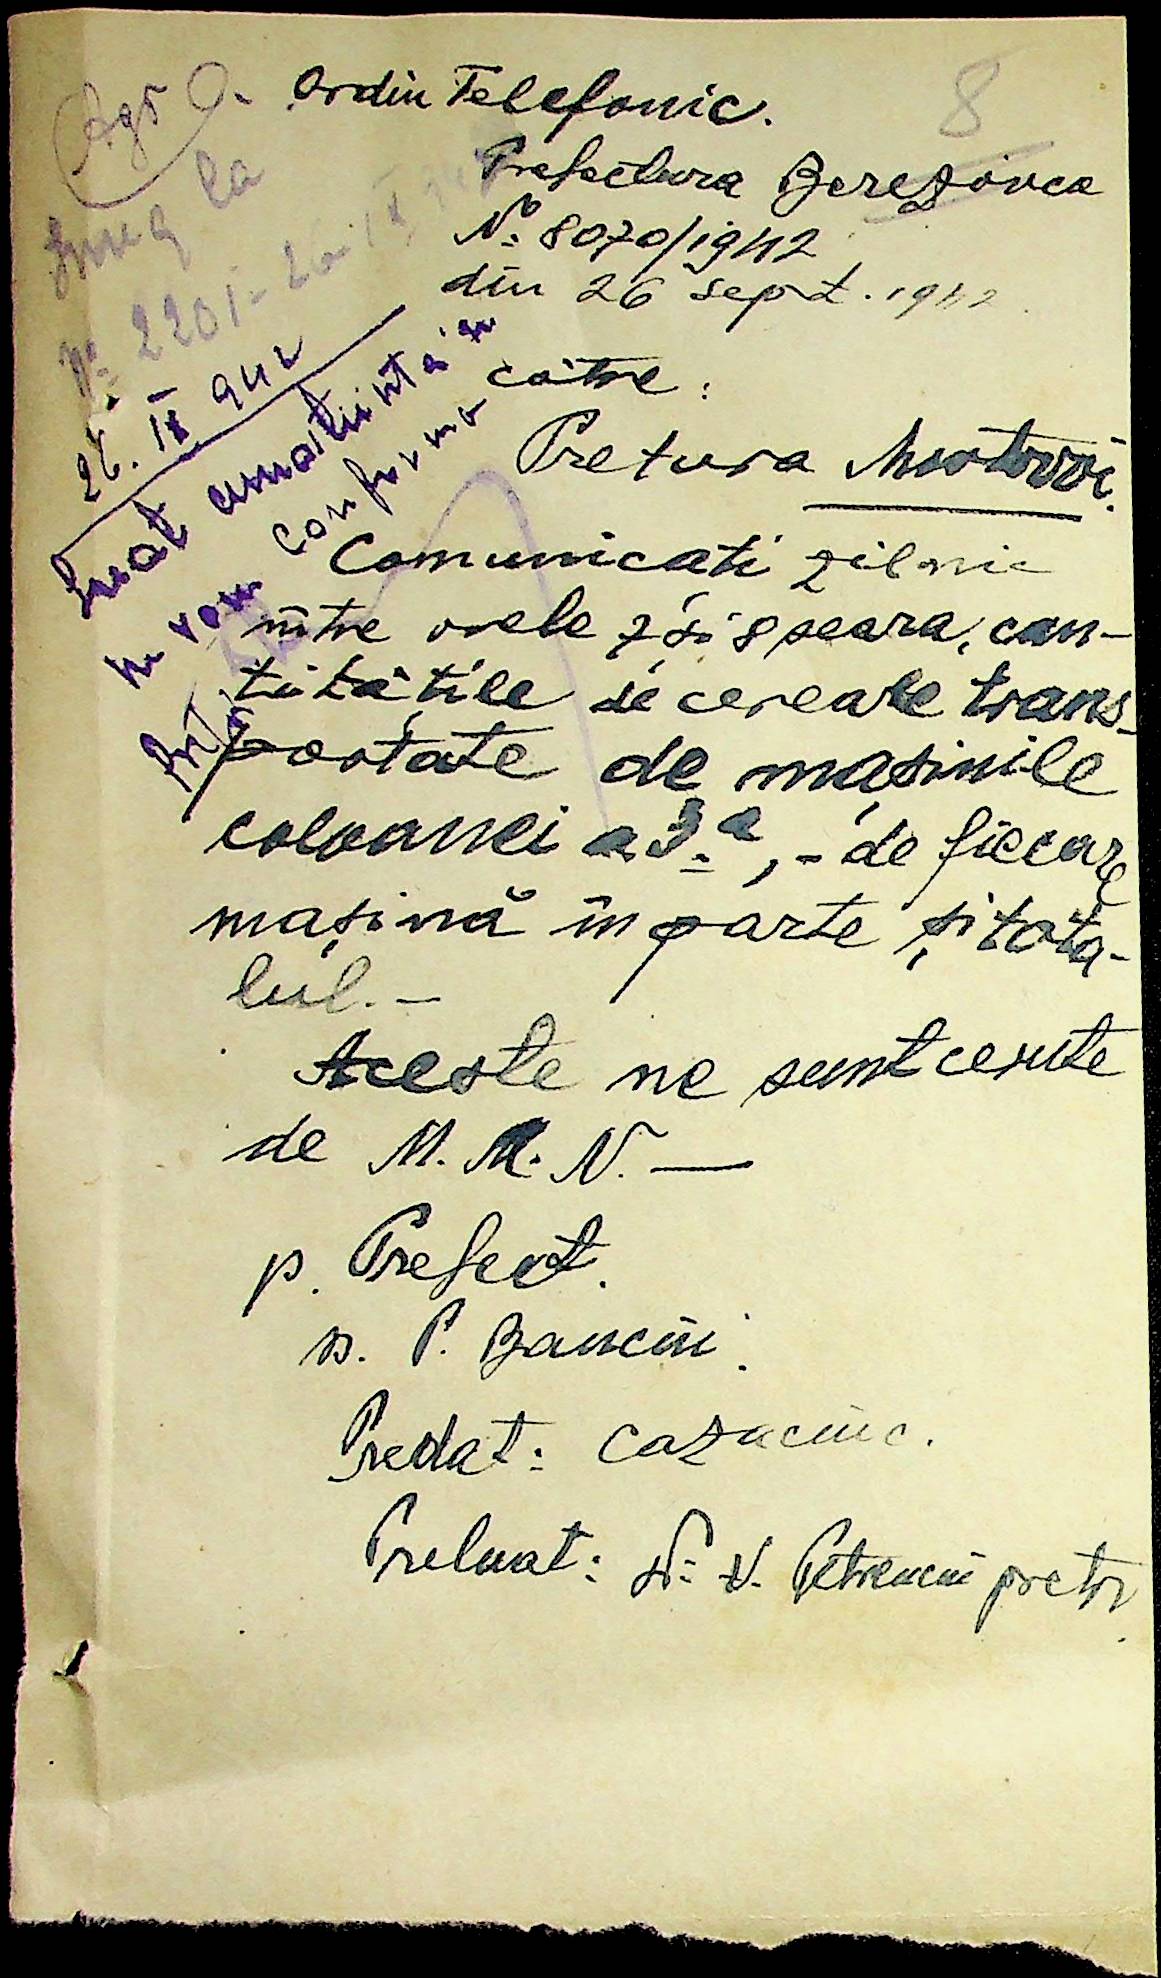 Ordin Telefonic.
8
Prefectura Berezovca
No. 8070/1942
din 26 Sept. 1942
către:
Pretura Mostovoi.
Comunicati zilnic
între orele 7 și 8 seara, can-
titățile de cereale trans-
portate de mașinile
coloanei a 3.a, - de fiecare
mașină în parte și tota-
lul. -
Aceste ne sunt cerute
de M. M. N. —
p. Prefect.
ss. P. Banciu.
Predat: Cazaciuc.
Preluat: V. Petrenciu pretor
Agr
Înreg la
No 2201 - 26 IX 942
26. IX 942
Luat cunoștință și
ne vom conforma